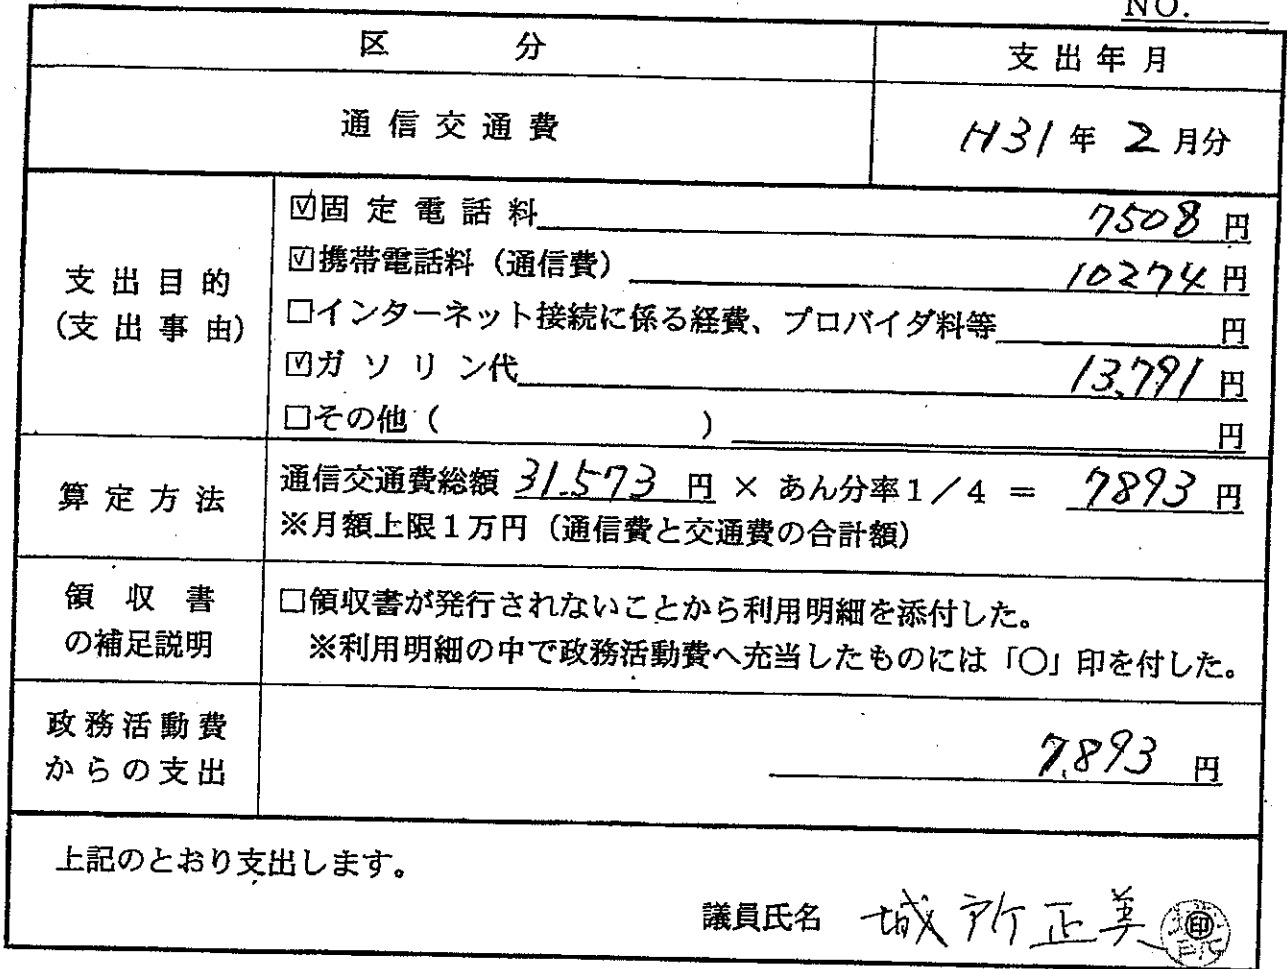 NO.
区 分 支出年月
通信交通費 H31年 2月分
支出目的
(支出事由)
☑固定電話料 7508円
☑携帯電話料（通信費） 10274円
□インターネット接続に係る経費、プロバイダ料等 円
☑ガソリン代 13,791円
□その他（ ） 円
算定方法
通信交通費総額 31.573 円 × あん分率1／4 ＝ 7893円
※月額上限1万円（通信費と交通費の合計額）
領収書
の補足説明
□領収書が発行されないことから利用明細を添付した。
※利用明細の中で政務活動費へ充当したものには「○」印を付した。
政務活動費
からの支出
7,893 円
上記のとおり支出します。
議員氏名 城所正美 印